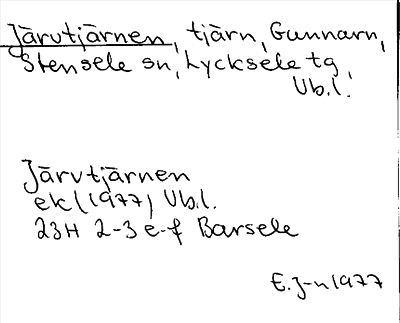 Järvtjärnen, tjärn, Gunnarn,
Stensele sn, Lycksele tg
Vb.l.
Järvtjärnen
ek (1977) Vb.l.
23H 2-3 e-f Barsele
E. J-n 1977